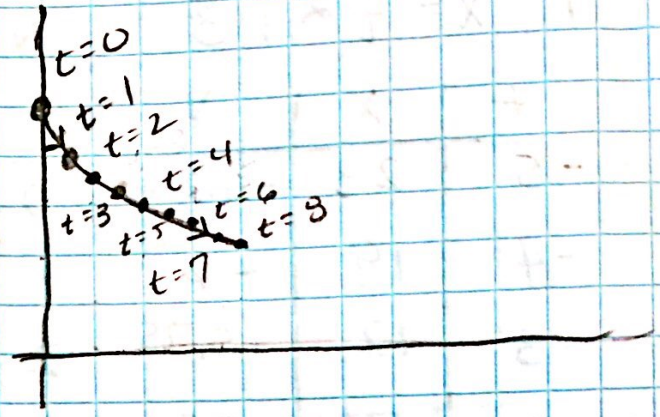 t=0
t=1
t=2
t=4
t=3
t=6
t=5
t=8
t=7